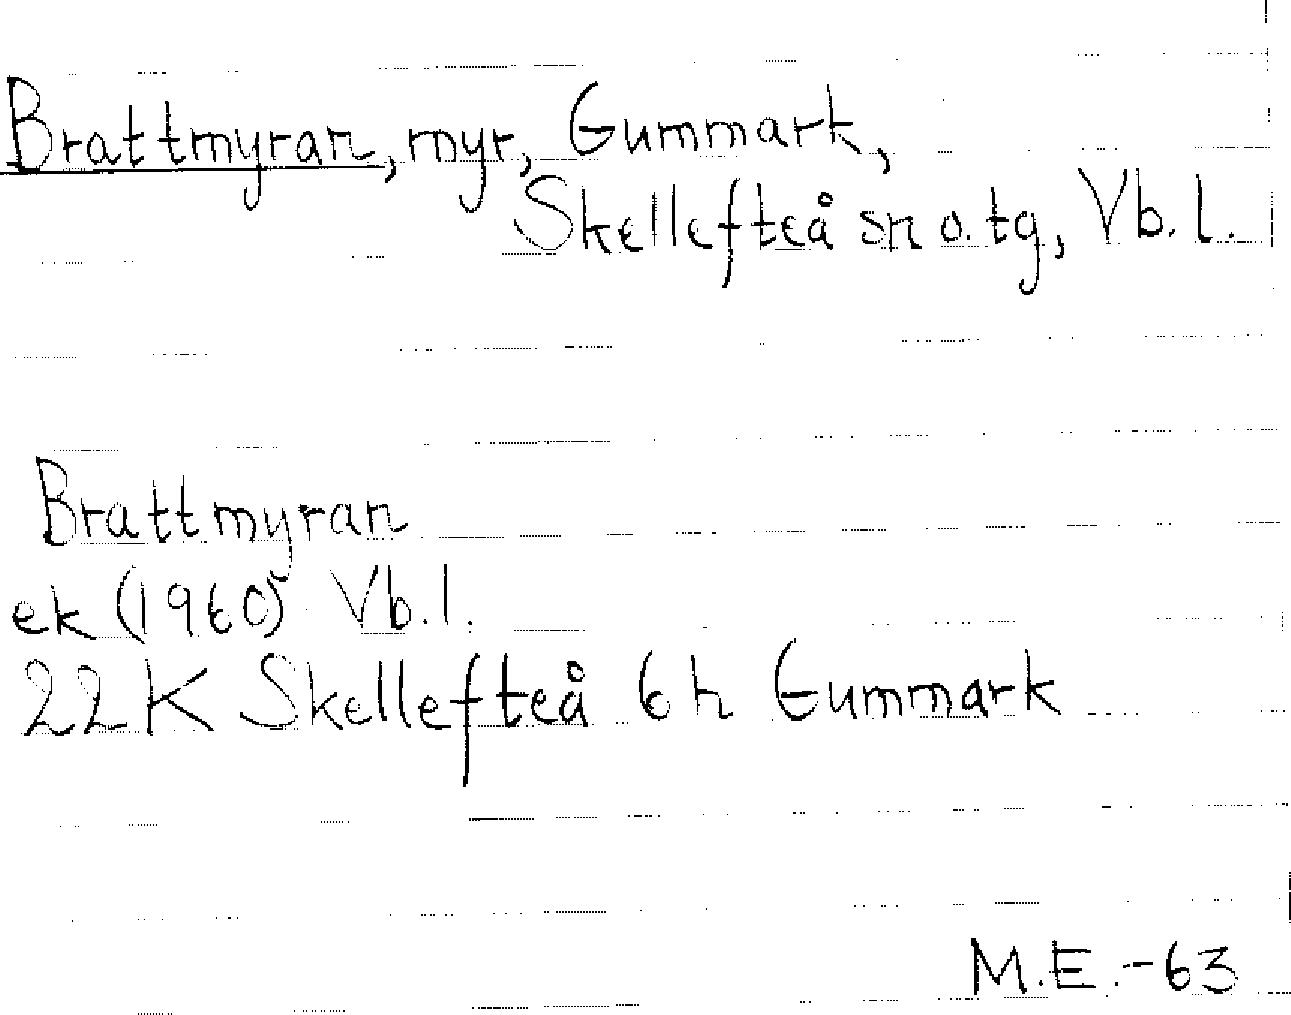 Brattmyran, myr, Gummark,
Skellefteå sn o. tg, Vb. l.
Brattmyran
ek (1960) Vb. l.
22K Skellefteå 6 h Gummark
M.E.-63